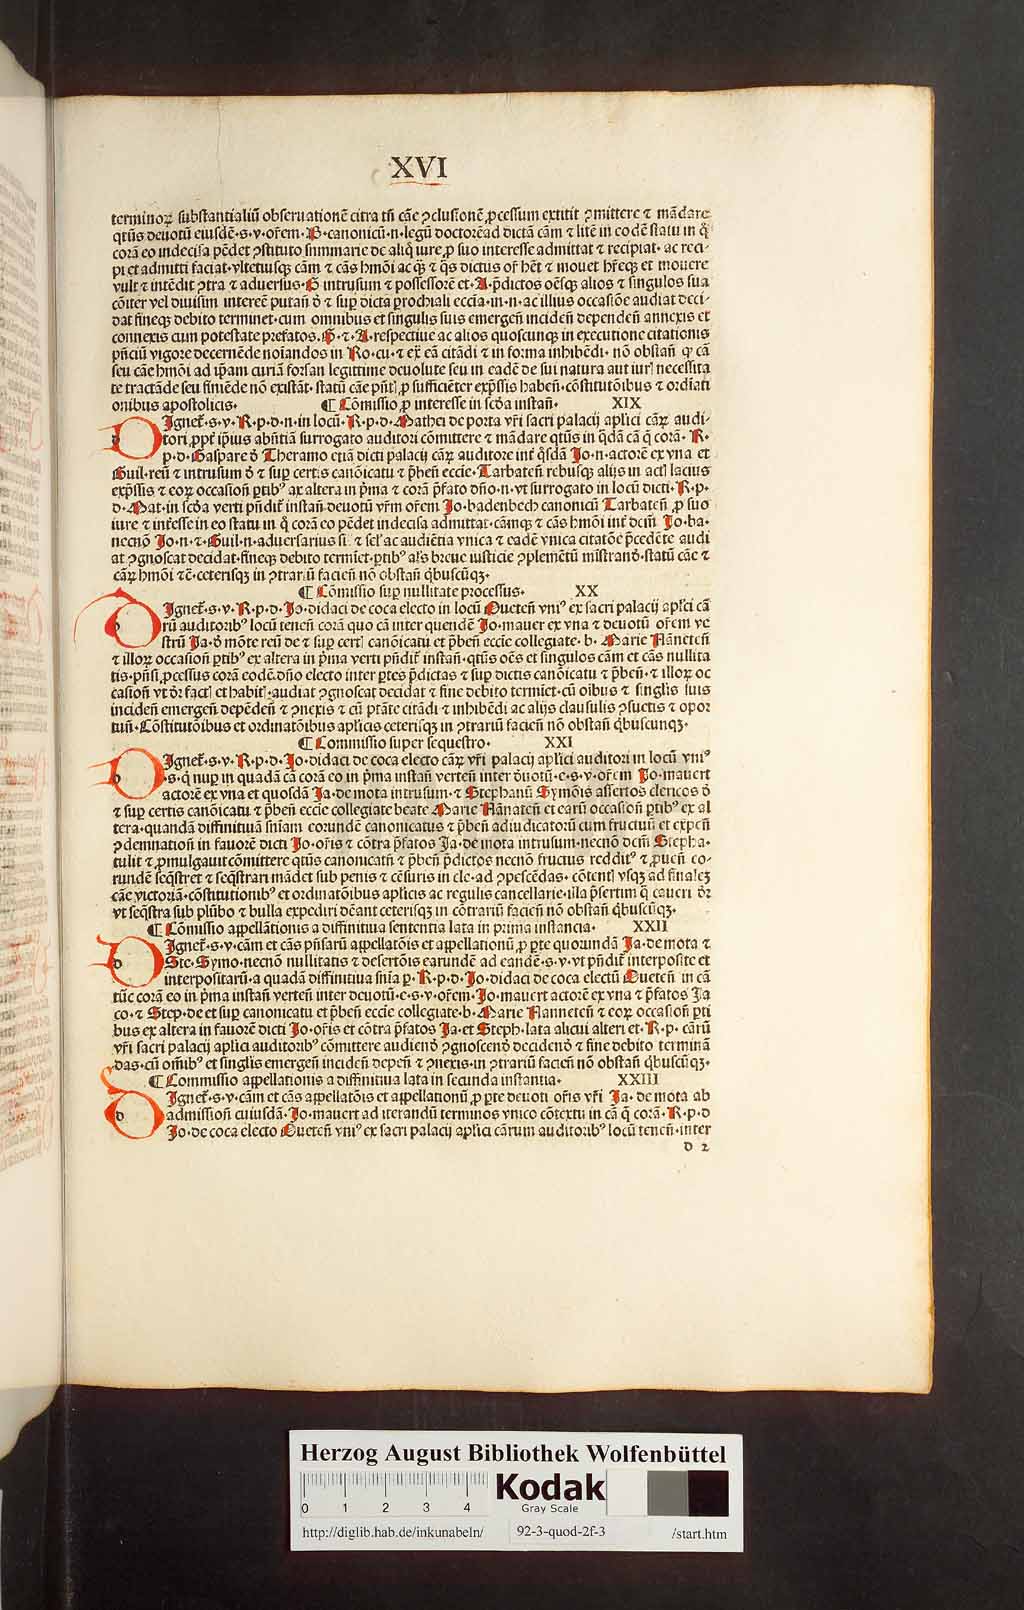 XVI
terminoꝝ substantialiū obseruationē citra tñ cāe ꝯclusionē ꝓcessum extitit ꝯmittere ⁊ mādare
qtūs deuotū eiusdē·s·v·ofem·B·canonicū·n·legū doctorē ad dictā cām ⁊ litē in eodē statu in q̄
corā eo indecisa pēdet ꝯstituto summarie de aliq̄ iure ꝓ suo interesse admittat ⁊ recipiat· ac reci-
pi et admitti faciat·vlteriusqꝫ cām ⁊ cās hmōi ac q̄ꝫ ⁊ q̄s dictus of hēt ⁊ mouet hr̄eqꝫ et mouere
vult ⁊ intēdit ꝯtra ⁊ aduersus· intrusum ⁊ possessorē et·A·p̄dictos oēsqꝫ alios ⁊ singulos sua
cōiter vel diuisim interēē putañ ō ⁊ suꝑ dicta ꝑrochiali eccīa·in·n·ac illius occasiōe audiat deci-
dat fineqꝫ debito terminet·cum omnibus et singulis suis emergeñ incideñ dependeñ annexis et
connexis cum potestate prefatos· ·⁊·A·respectiue ac alios quoscunqꝫ in executione citationis
pñciū vigore decernēde noīandos in Ro·cu·⁊ ex̄ eā citādi ⁊ in forma inhibēdi· nō obstañ q cā
seu cāe hmōi ad ip̄am curiā forsan legittime deuolute seu in eadē de sui natura aut iurꝭ necessita
te tractāde seu finiēde nō existāt· statū cāe pñtꝭ ꝓ sufficiēter exp̄ssis habeñ·cōstitutōibus ⁊ ordīati
onibus apostolicis· ¶ Cōmissio ꝓ interesse in scōa instañ· XIX
DIgneꝉ·s·v·R·p·d·n·in locū·R·p·d·Mathei de porta vr̄i sacri palacij apl̄ici cāꝝ audi-
tori ꝓpt̄ ip̄ius abñtiā surrogato auditori cōmittere ⁊ mādare qtūs in q̄dā cā q̄ corā· R·
p·d·Gaspare ō Theramo etiā dicti palacij cāꝝ auditore int̄ q̄sdā Jo·n·actorē ex vna et
Guil·reū ⁊ intrusum ō ⁊ suꝑ certis canōicatu ⁊ p̄beñ eccīe·Tarbateñ rebusqꝫ alijs in actꝭ lacius
exp̄ssis ⁊ eoꝝ occasioñ ꝑtibꝰ ax altera in p̄ma ⁊ corā p̄fato dño·n·vt surrogato in locū dicti·R·p·
d·Mat·in scōa verti pñdit̄ instañ deuotū vr̄m ofem Jo·badenbech canonicū Tarbateñ ꝓ suo
iure ⁊ int̄esse in eo statu in q̄ corā eo pēdet indecisa admittat·cāmqꝫ ⁊ cās hmōi int̄ dcm̄ Jo·ba·
necnō Jo·n·⁊·Guil·n·aduersarius si ⁊ sel' ac audiētia vnica ⁊ eadē vnica citatōe p̄cedēte audi
at ꝯgnoscat decidat·fineqꝫ debito termīet·ꝑtibꝰ al's breue iusticie ꝯplemētū mīstranō·statū cāe ⁊
cāꝝ hmōi ⁊ē·ceterisqꝫ in ꝯtrariū facieñ nō obstañ q̄buscūqꝫ·
¶ Cōmissio suꝑ nullitate processus· XX
DIgneꝉ·s·v·R·p·d·Jo·didaci de coca electo in locū Oueteñ vniꝰ ex sacri palacij apl̄ici cā
rū auditoribꝰ locū teneñ corā quo cā inter quendē Jo·mauer ex vna ⁊ deuotū ofem ve
strū Ja·ō mōte reū de ⁊ suꝑ certꝭ canōicatu et p̄beñ eccīe collegiate· b· Marie Nāneteñ
⁊ illoꝝ occasioñ ꝑtibꝰ ex altera in p̄ma verti pñdit̄ instañ·qtūs oēs et singulos cām et cās nullita
tis·pñsi ꝓcessus corā eodē dño electo inter ꝑtes p̄dictas ⁊ suꝑ dictis canōicatu ⁊ p̄beñ·⁊ illoꝝ oc
casioñ vt dr̄ factꝭ et habitꝭ·audiat ꝯgnoscat decidat ⁊ fine debito termīet·cū oībus ⁊ singlis suis
incideñ emergeñ depēdeñ ⁊ ꝯnexis ⁊ cū ptāte citādi ⁊ inhibēdi ac alijs clausulis ꝯsuetis ⁊ opor
tuñ·Cōstitutōibus et ordinatōibus apl̄icis ceterisqꝫ in ꝯtrariū facieñ nō obstañ q̄buscunqꝫ·
¶ Commissio super sequestro· XXI
DIgneꝉ·s·v·R·p·d·Jo·didaci de coca electo cāꝝ vr̄i palacij apl̄ici auditori in locū vniꝰ
·s·q̄ nuꝑ in quadā cā corā eo in p̄ma instañ verteñ inter ōuotū·e·s·v·ofem Jo·mauert
actorē ex vna et quosdā Ja·de mota intrusum·⁊ Stephanū Symōis assertos clericos ō
⁊ suꝑ certis canōicatu ⁊ p̄beñ eccīe collegiate beate Marie Nānateñ et earū occasioñ ꝑtibꝰ ex al
tera·quandā diffinitiuā sn̄iam eorundē canonicatus ⁊ p̄beñ adiudicatoriū cum fructuū et expeñ
ꝯdemnatioñ in fauorē dicti Jo·ofis ⁊ cōtra p̄fatos Ja·de mota intrusum·necnō dcm̄ Stepha·
tulit ⁊ ꝓmulgauit cōmittere qtūs canonicatū ⁊ p̄beñ p̄dictos necnō fructus redditꝰ ⁊ ꝓueñ eo-
rundē seq̄stret ⁊ seq̄strari mādet sub penis ⁊ cēsuris in elc·ad ꝯpescēdas· cōtentꝭ vsqꝫ ad finaleꝫ
cāe victoriā·cōstitutionibꝰ et ordinatōibus apl̄icis ac regulis cancellarie·illa p̄sertim q̄ caueri dr̄
vt seq̄stra sub plūbo ⁊ bulla expediri dēant ceterisqꝫ in cōtrariū facieñ nō obstañ q̄buscūqꝫ·
¶ Cōmissio appellationis a diffinitiua sententia lata in prima instancia· XXII
DIgneꝉ·s·v·cām et cās pñsarū appellatōis et appellationū ꝓ ꝑte quorundā Ja·de mota ⁊
Ste·Symo·necnō nullitatis ⁊ desertōis earundē ad eandē·s·v·vt pñdit̄ interposite et
interpositarū·a quadā diffinitiua sn̄ia ꝑ·R·p·d·Jo·didaci de coca electū Oueteñ in cā
tūc corā eo in p̄ma instañ verteñ inter deuotū·e·s·v·ofem·Jo·mauert actorē ex vna ⁊ p̄fatos Ja
co·⁊ Step·de et suꝑ canonicatu et p̄beñ eccīe collegiate·b·Marie Nanneteñ ⁊ eoꝝ occasioñ ꝑti
bus ex altera in fauorē dicti Jo·ofis et cōtra p̄fatos Ja·et Steph·lata alicui alteri et·R·p· cārū
vr̄i sacri palacij apl̄ici auditoribꝰ cōmittere audienō ꝯgnoscenō decidenō ⁊ fine debito terminā
das·cū om̄ibꝰ et singlis emergeñ incideñ depeñ ⁊ ꝯnexis·in ꝯtrariū facieñ nō obstañ q̄buscūqꝫ·
¶ Commissio appellationis a diffinitiua lata in secunda instantia· XXIII
DIgneꝉ·s·v·cām et cās appellatōis et appellationū ꝓ ꝑte deuoti ofis vr̄i Ja· de mota ab
admissioñ cuiusdā·Jo·mauert ad iterandū terminos vnico cōtextu in cā q̄ corā·R·p·d
Jo·de coca electo Oueteñ vniꝰ ex sacri palacij apl̄ici cārum auditoribꝰ locū teneñ·inter
d 2
Herzog August Bibliothek Wolfenbüttel
0 1 2 3 4
Kodak
Gray Scale
http://diglib.hab.de/inkunabeln/ 92-3-quod-2f-3 /start.htm